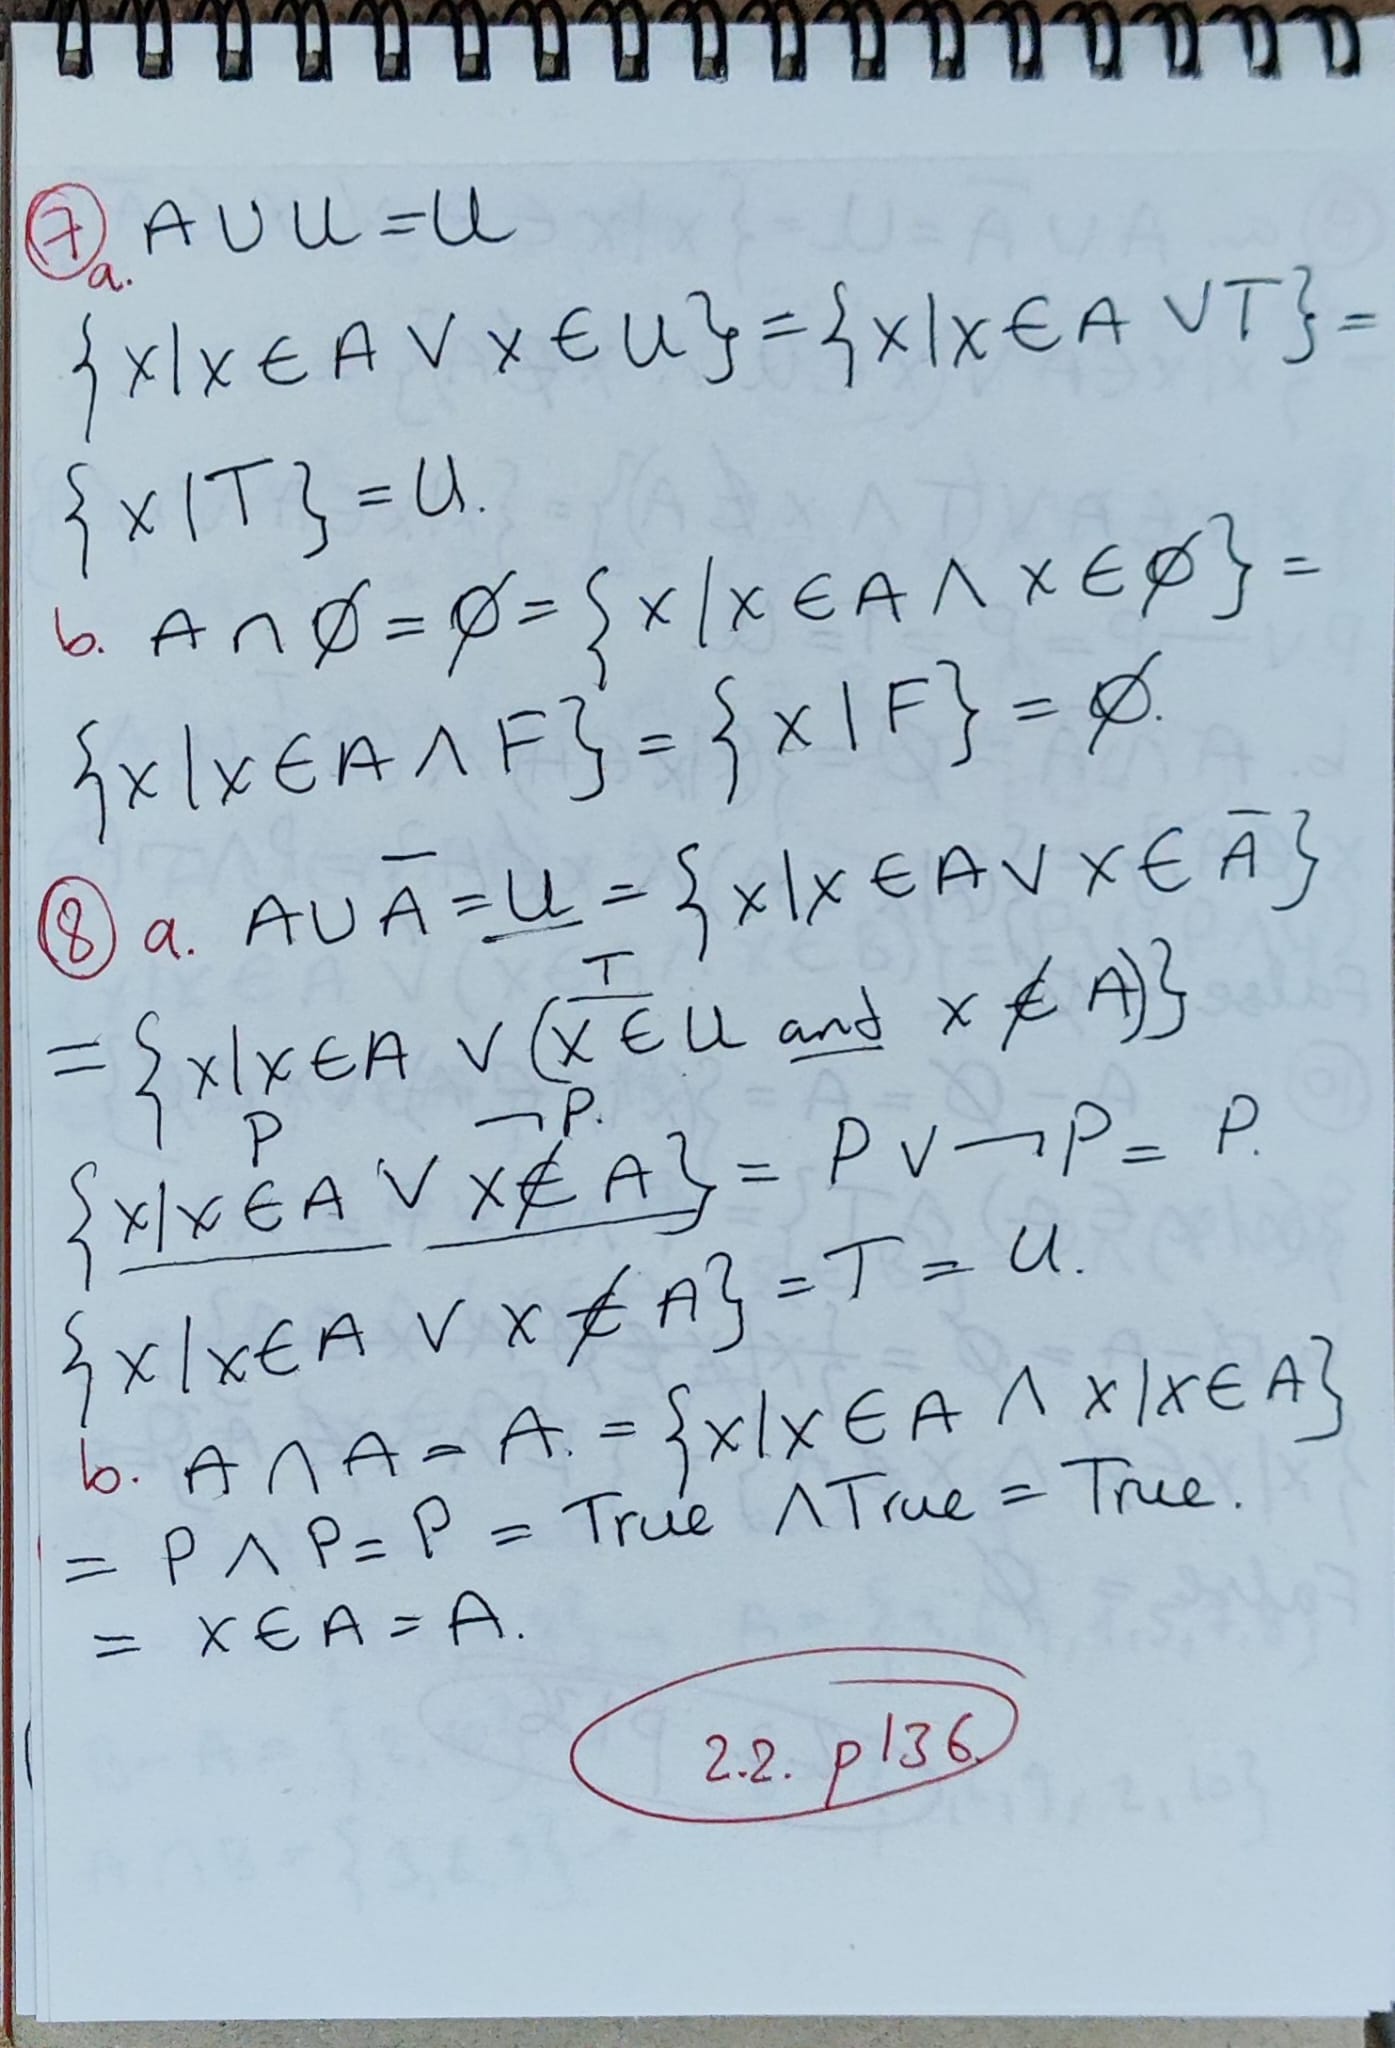 ⑦ a. A∪U=U
{x|x∈A∨x∈U}={x|x∈A∨T}=
{x|T}=U.
b. A∩∅=∅={x|x∈A∧x∈∅}=
{x|x∈A∧F}={x|F}=∅.
⑧ a. A∪A̅=U={x|x∈A∨x∈A̅}
T
={x|x∈A∨(x∈U and x∉A)}
P ¬P.
{x|x∈A∨x∉A}=P∨¬P=P.
{x|x∈A∨x∉A}=T=U.
b. A∩A=A.={x|x∈A∧x|x∈A}
=P∧P=P=True∧True=True.
=x∈A=A.
2.2. p136.